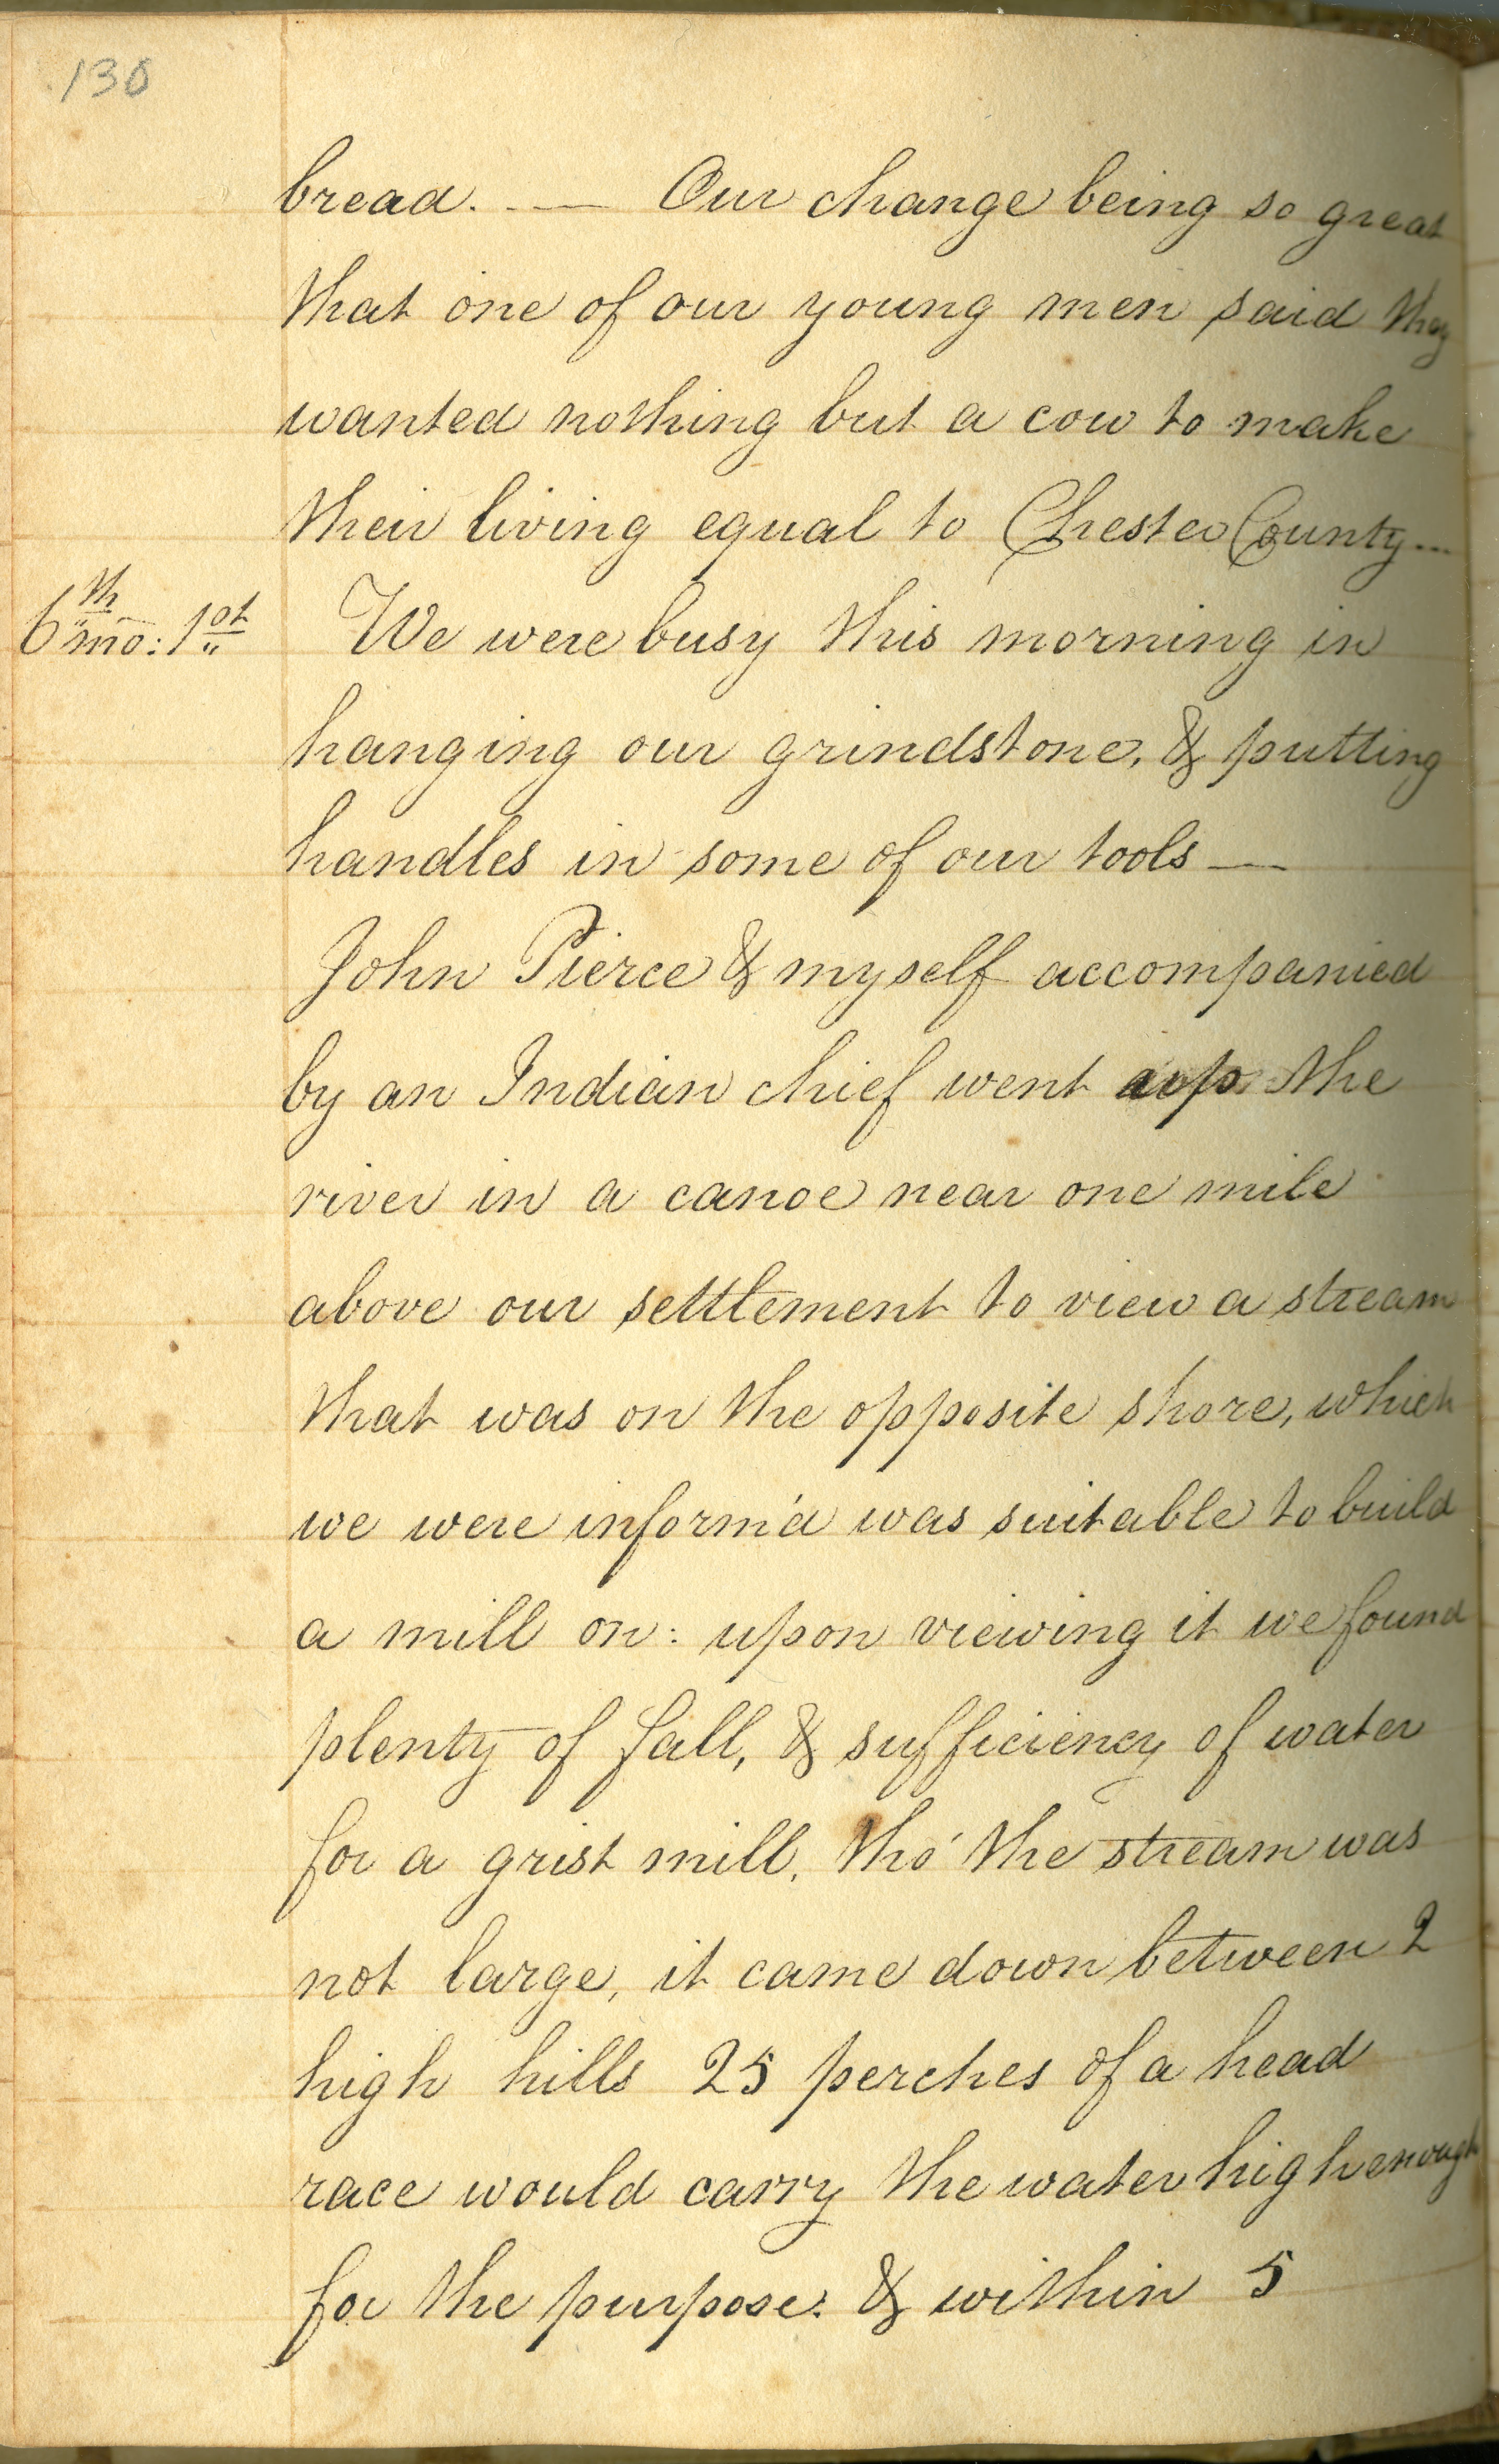 130
bread. — Our change being so great
that one of our young men said they
wanted nothing but a cow to make
their living equal to Chester County...
6th mo: 1st We were busy this morning in
hanging our grindstone, & putting
handles in some of our tools —
John Pierce & myself accompanied
by an Indian chief went up the
river in a canoe near one mile
above our settlement to view a stream
that was on the opposite shore, which
we were inform'd was suitable to build
a mill on: upon viewing it we found
plenty of fall, & sufficiency of water
for a grist mill, tho' the stream was
not large, it came down between 2
high hills 25 perches of a head
race would carry the water high enough
for the purpose. & within 5